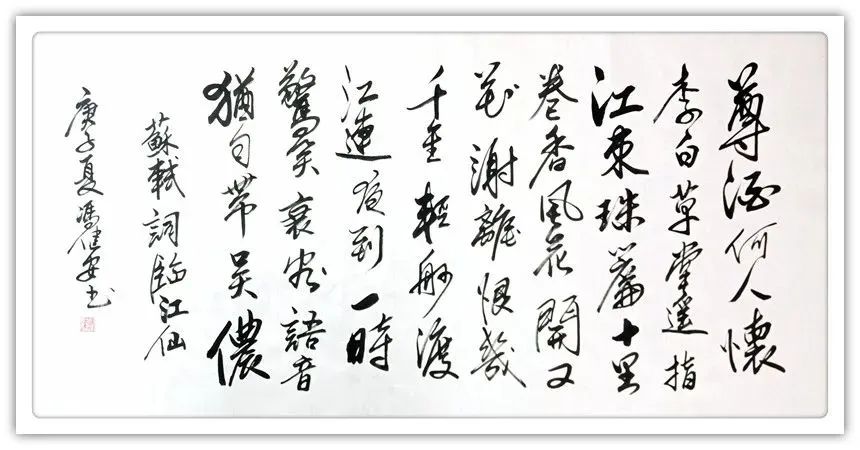 尊酒何人懷
李白草堂遙指
江東珠簾十里
卷香風花開又
花謝離恨幾
千重輕舸渡
江連夜到一時
驚笑衰容語音
猶自帶吳儂
蘇軾詞臨江仙
庚子夏馮健安書